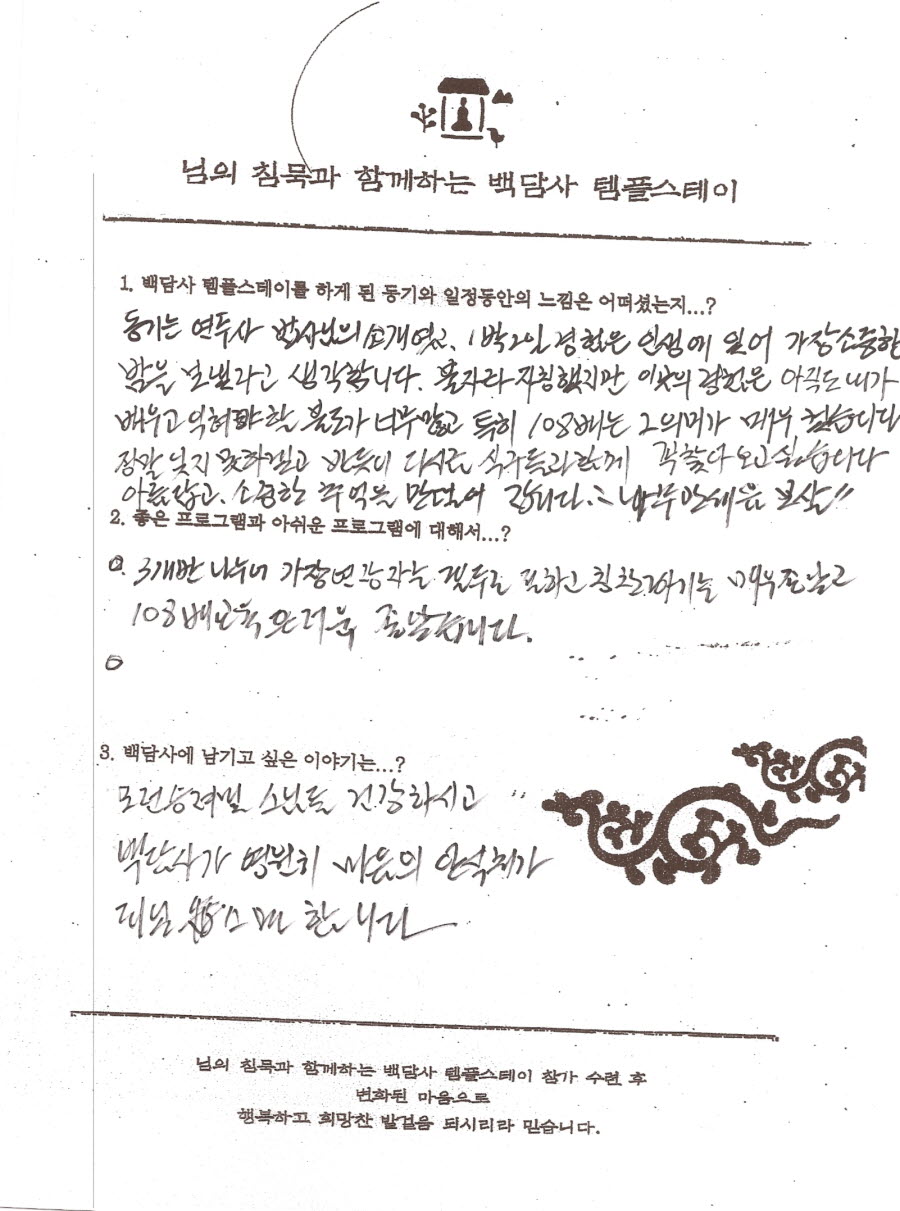 님의 침묵과 함께하는 백담사 템플스테이
1. 백담사 템플스테이를 하게 된 동기와 일정동안의 느낌은 어떠셨는지...?
동기는 소개였고, 1박2일 경험은 인생에 있어 가장소중한
밤을 보냈다고 생각합니다. 불자라 자칭했지만 경험은 아직도 내가
배우고 익혀야 할 불도가 너무많고 특히 108배는 그 의미가 매우 컸습니다
정말 잊지 못하겠고 반듯이 다시 식구들과 함께 꼭 찾아 오고 싶습니다
아름답고, 소중한 추억을 만들어 갑니다.
2. 좋은 프로그램과 아쉬운 프로그램에 대해서...?
○. 3개반 나누어 매우 좋았고
108배 더욱 좋았습니다.
○
3. 백담사에 남기고 싶은 이야기는...?
모든 스님들 건강하시고
백담사가 영원히 마음의 안식처가
되닜 으면 합니다
님의 침묵과 함께하는 백담사 템플스테이 참가 수련 후
변화된 마음으로
행복하고 희망찬 발걸음 되시리라 믿습니다.